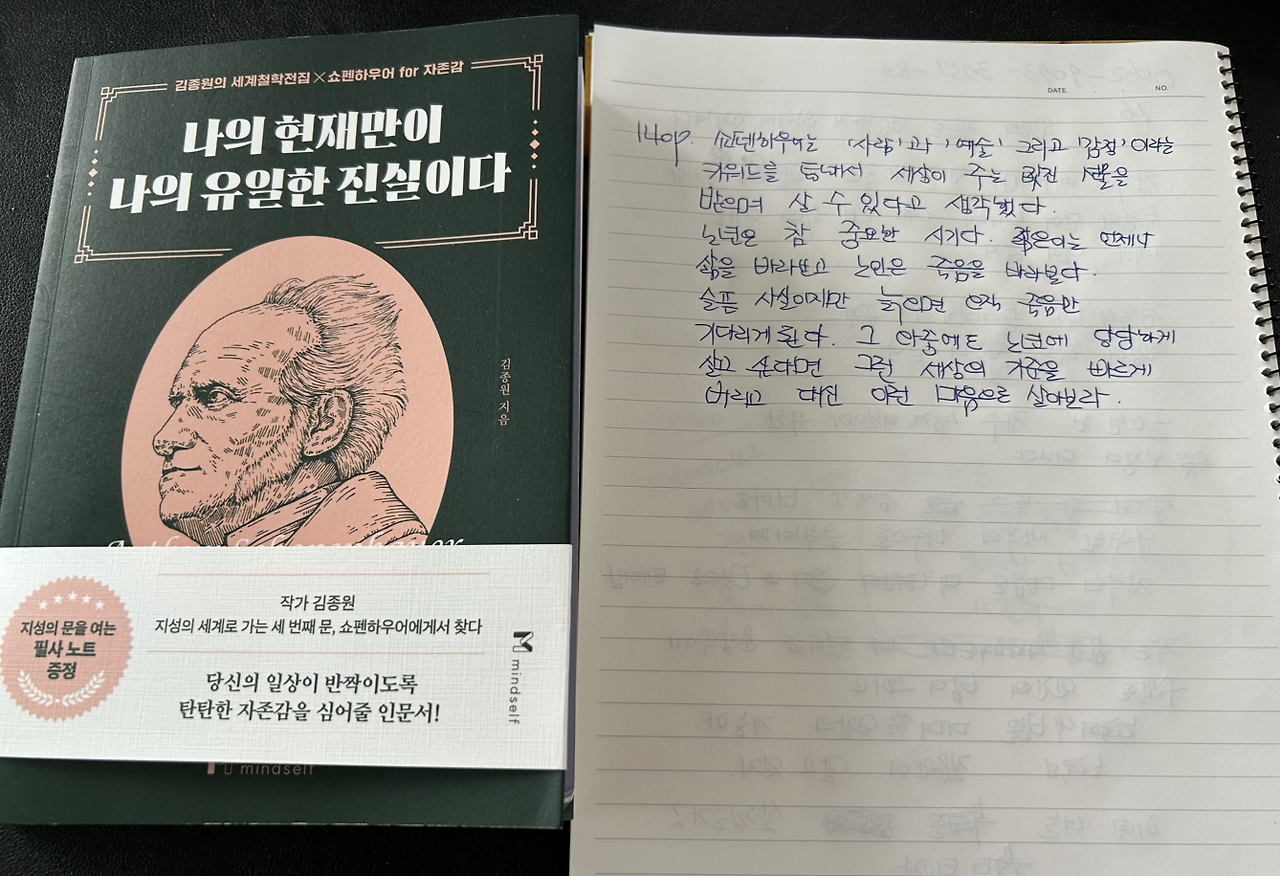 김종원의 세계철학전집×쇼펜하우어 for 자존감
나의 현재만이
나의 유일한 진실이다
김종원 지음
작가 김종원
지성의 세계로 가는 세 번째 문, 쇼펜하우어에게서 찾다
당신의 일상이 반짝이도록
탄탄한 자존감을 심어줄 인문서!
지성의 문을 여는
필사 노트
증정
mindself
mindself
DATE. NO.
140p. 쇼펜하우어는 '사랑'과 '예술' 그리고 '감정'이라는
키워드를 통해서 세상이 주는 멋진 선물을
받으며 살 수 있다고 생각했다.
노년은 참 중요한 시기다. 젊은이는 언제나
삶을 바라보고 노인은 죽음을 바라본다.
슬픈 사실이지만 늙으면 오직 죽음만
기다리게 된다. 그 와중에도 노년에 당당하게
살고 싶다면 그런 세상의 기준을 빠르게
버리고 대신 이런 마음으로 살아보라.